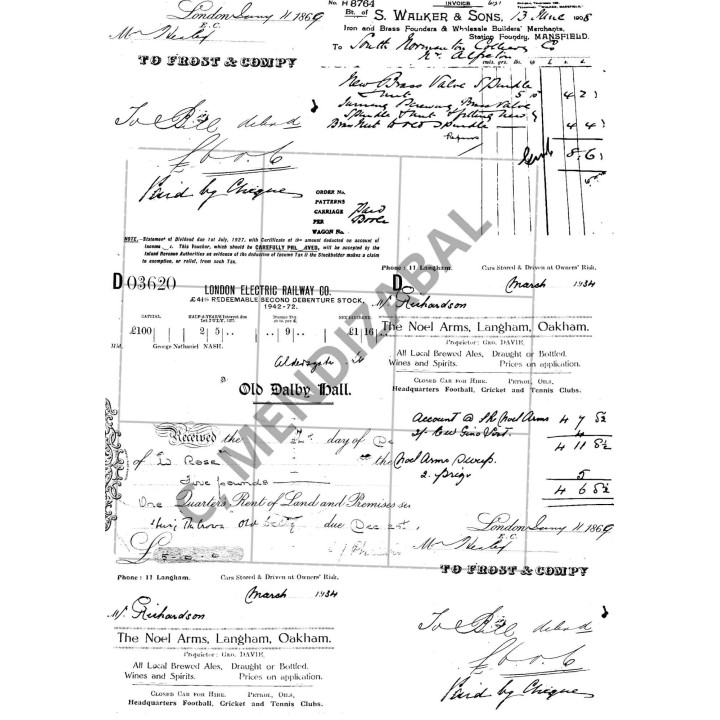 London Jany 11 1869
E.C.
Mr Henley
TO FROST & COMPY
To Bill
£ 6 0. 6
Paid by Cheque
No. H 8764
INVOICE
Bt. of S. WALKER & SONS, 13 June 1905
Iron and Brass Founders & Wholesale Builders' Merchants,
Station Foundry, MANSFIELD.
To South Normanton Colliery Co
Nr. Alfreton
New Brass Valve Spindle
& nut
Turning Screwing Brass Valve
Spindle & nut & fitting new
Brass Nut to old Spindle
4 2
4 4
8. 6
ORDER No.
PATTERNS
CARRIAGE Paid
PER
WAGON No.
NOTE.—Statement of Dividend due 1st July, 1927, with Certificate of the amount deducted on account of
Income This Voucher, which should be CAREFULLY , will be accepted by the
Inland Revenue Authorities as evidence of the deduction of Income Tax if the Stockholder makes a claim
to exemption, or relief, from such Tax.
D 03620
LONDON ELECTRIC RAILWAY CO.
REDEEMABLE SECOND DEBENTURE STOCK,
1942-72.
CAPITAL
HALF-A-YEAR'S Interest due
1st JULY, 1927.
NET DIVIDEND
£100 2 5 .. .. 9 .. £1 16
George Nathaniel NASH.
D
Old Dalby Hall.
Received the day of
of Rose the
pounds
One Quarters Rent of Land and Premises
due Dec 25th
£5 - 0 - 0
Phone: 11 Langham. Cars Stored & Driven at Owners' Risk.
D
March 1934
Mr. Richardson
The Noel Arms, Langham, Oakham.
Proprietor: GEO. DAVIE.
All Local Brewed Ales, Draught or Bottled.
Wines and Spirits. Prices on application.
CLOSED CAR FOR HIRE. PETROL, OILS,
Headquarters Football, Cricket and Tennis Clubs.
Account @ the Noel Arms 4 7 5½
4
4 11 5½
Noel Arms Sweep
5
4 6 5½
London Jany 11 1869
E.C.
Mr Henley
TO FROST & COMPY
To Bill
£ 6 0. 6
Paid by Cheque
Phone: 11 Langham. Cars Stored & Driven at Owners' Risk.
March 1934
Mr. Richardson
The Noel Arms, Langham, Oakham.
Proprietor: GEO. DAVIE.
All Local Brewed Ales, Draught or Bottled.
Wines and Spirits. Prices on application.
CLOSED CAR FOR HIRE. PETROL, OILS,
Headquarters Football, Cricket and Tennis Clubs.
C. MENDIZABAL